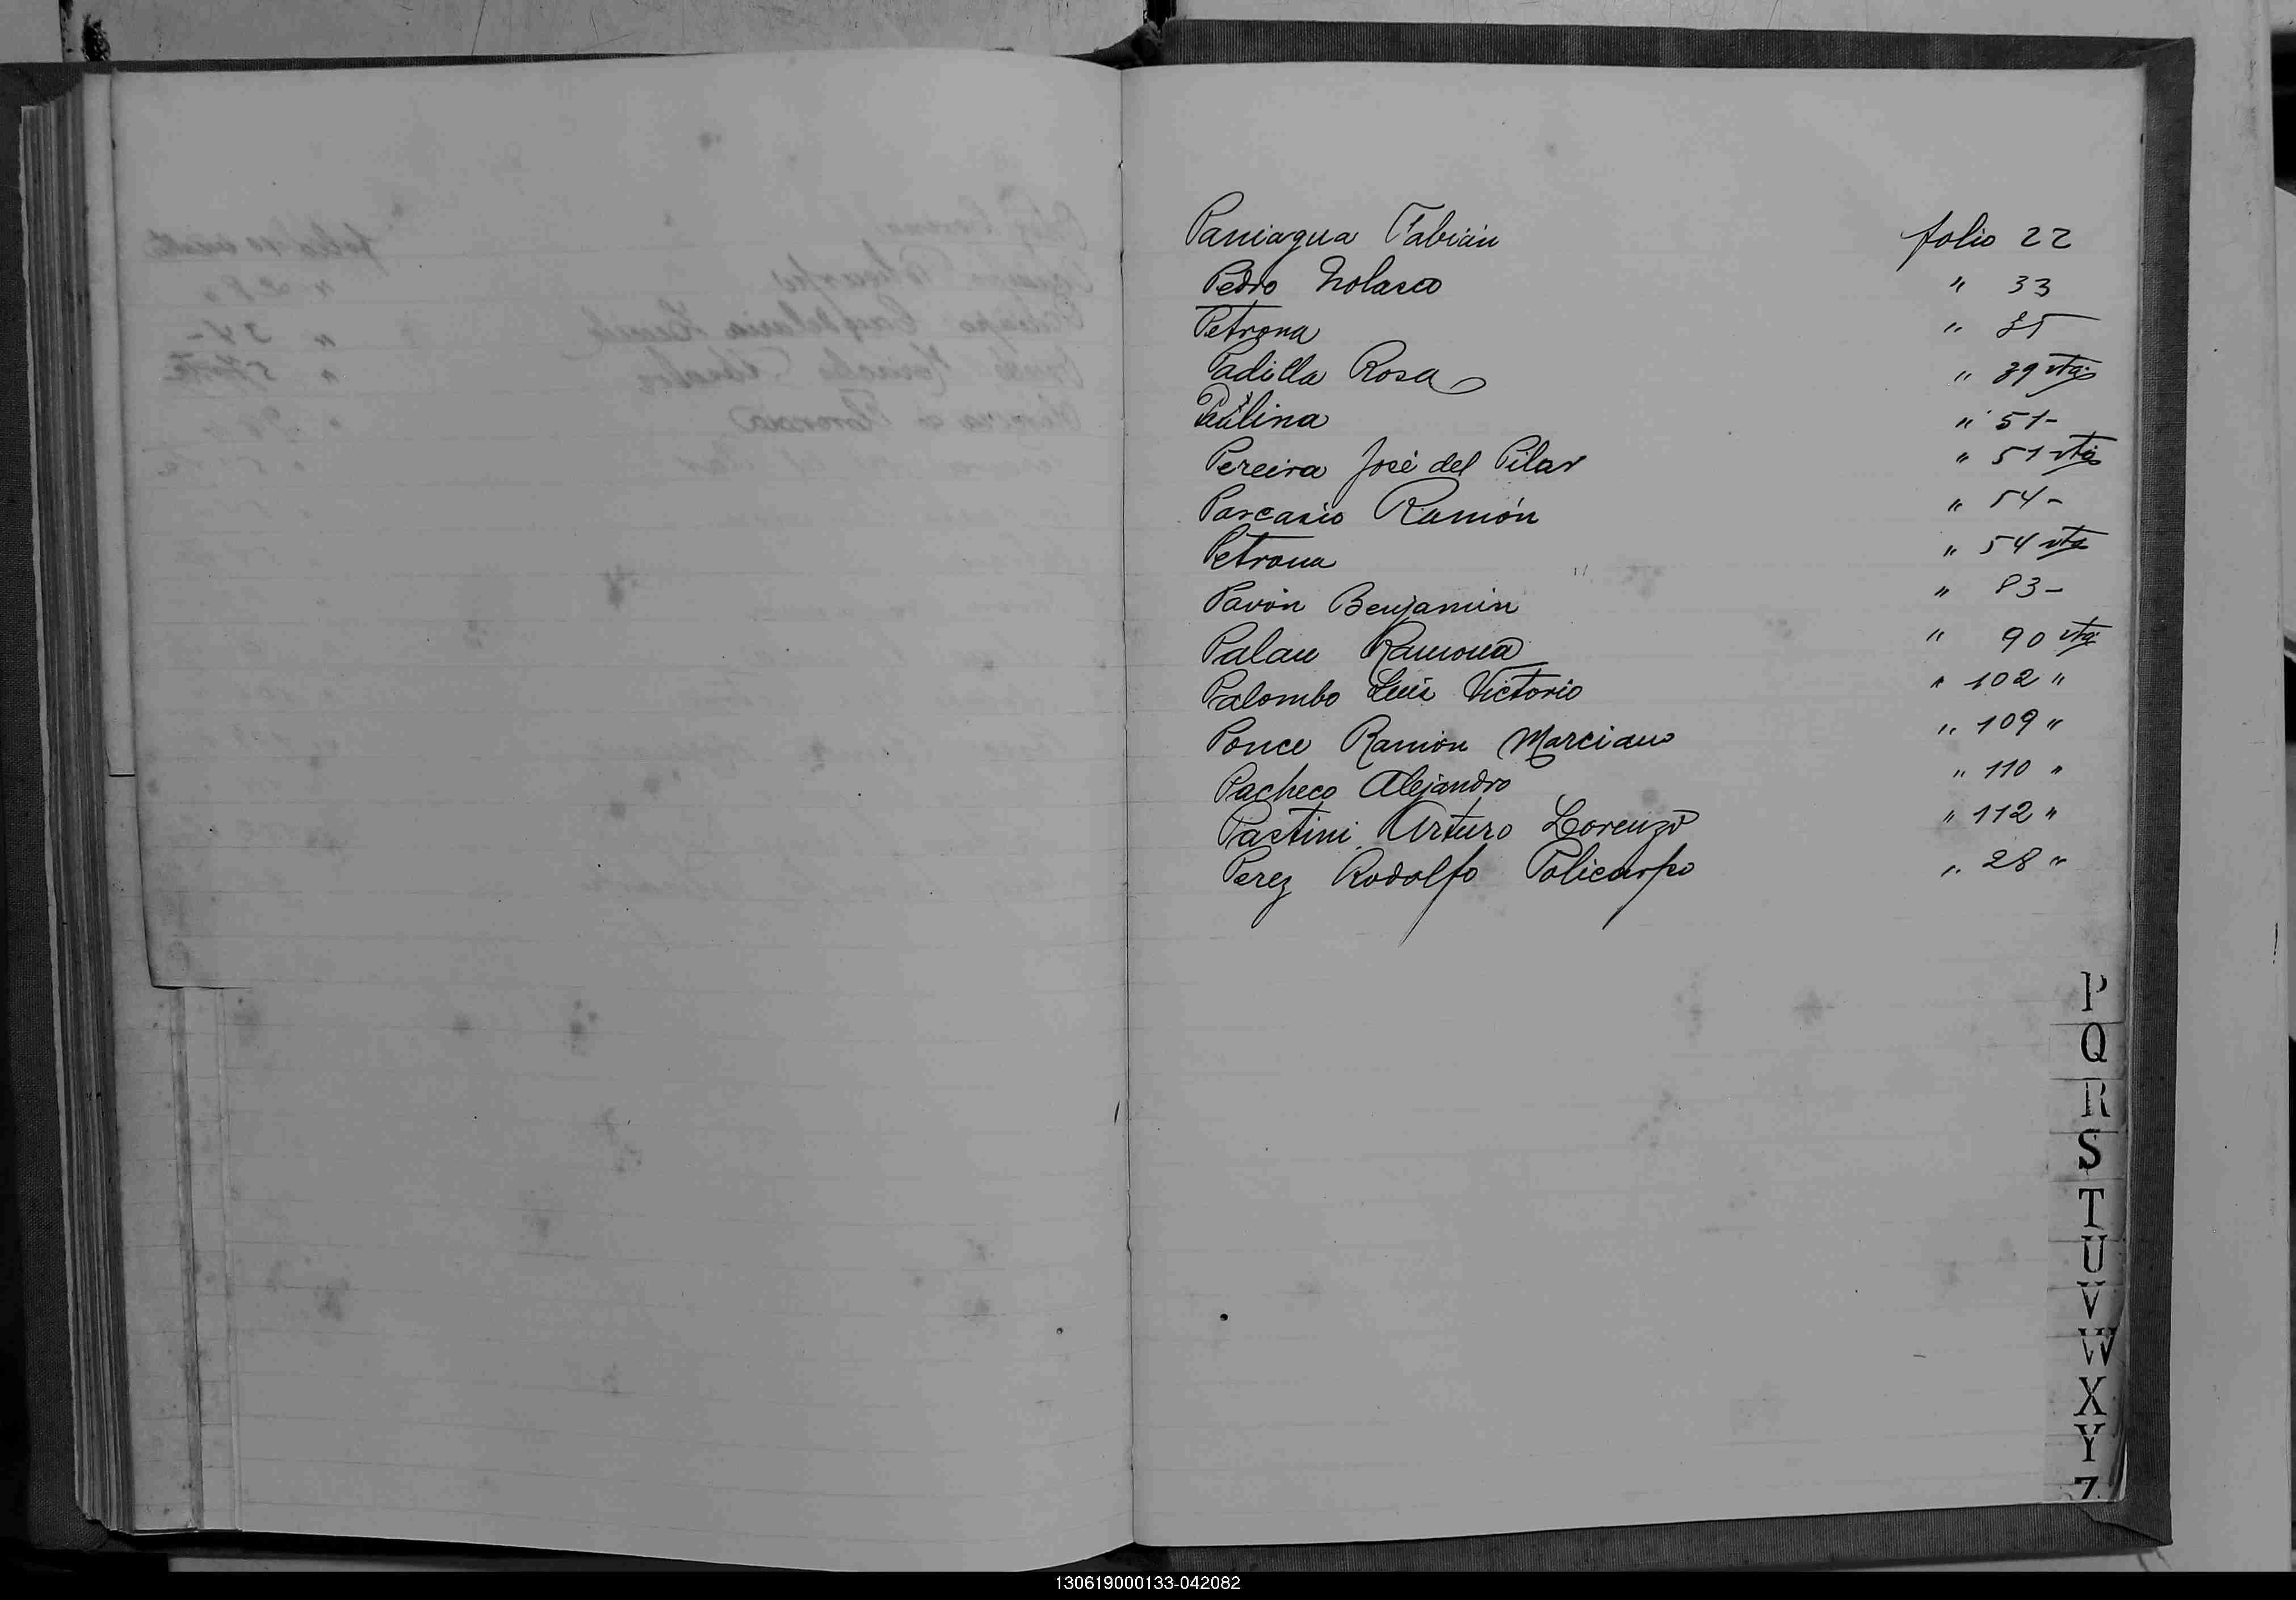 Paniagua Fabián folio 22
Pedro Nolasco " 33
Petrona " 35
Padilla Rosa " 39 vta
Paulina " 51-
Pereira José del Pilar " 51 vta
Pascasio Ramón " 54-
Petrona " 54 vta
Pavón Benjamin " 83-
Palau Ramona " 90 vta
Palombo Luis Victorio " 102 "
Ponce Ramón Marciano " 109 "
Pacheco Alejandro " 110 "
Pastini Arturo Lorenzo " 112 "
Perez Rodolfo Policarpo " 28 "
P
Q
R
S
T
U
V
W
X
Y
Z
130619000133-042082